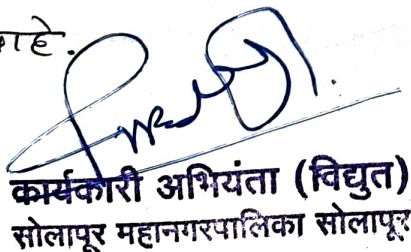 आहे.
कार्यकारी अभियंता (विद्युत)
सोलापूर महानगरपालिका सोलापूर